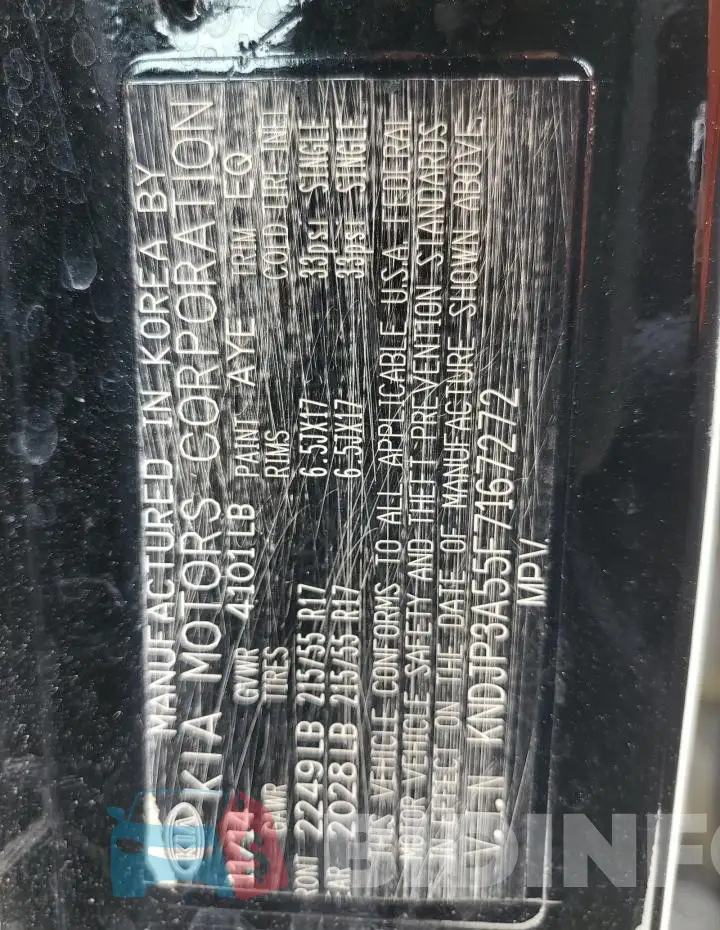 MANUFACTURED IN KOREA BY
KIA KIA MOTORS CORPORATION
GVWR 4101 LB PAINT AYE TRIM EQ
TIRES RIMS COLD TIRE INFL
FRONT 2249 LB 215/55 R17 6.5JX17 33psi SINGLE
2028 LB 215/55 R17 6.5JX17 33psi SINGLE
THIS VEHICLE CONFORMS TO ALL APPLICABLE U.S.A. FEDERAL
MOTOR VEHICLE SAFETY AND THEFT PREVENTION STANDARDS
IN EFFECT ON THE DATE OF MANUFACTURE SHOWN ABOVE.
V.I.N KNDJP3A55F7167272
MPV.
BIDINFO